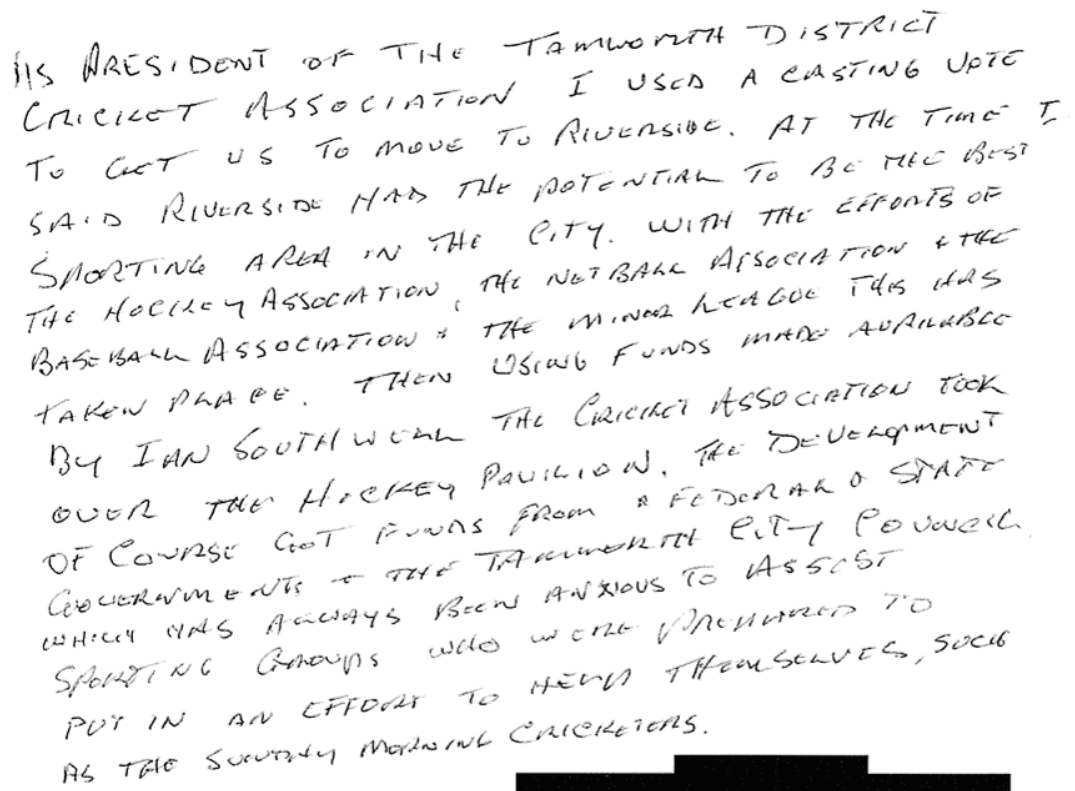 AS PRESIDENT OF THE TAMWORTH DISTRICT
CRICKET ASSOCIATION I USED A CASTING VOTE
TO GET US TO MOVE TO RIVERSIDE. AT THE TIME I
SAID RIVERSIDE HAD THE POTENTIAL TO BE THE BEST
SPORTING AREA IN THE CITY. WITH THE EFFORTS OF
THE HOCKEY ASSOCIATION, THE NETBALL ASSOCIATION & THE
BASEBALL ASSOCIATION & THE MINOR LEAGUE THIS HAS
TAKEN PLACE. THEN USING FUNDS MADE AVAILABLE
BY IAN SOUTHWELL THE CRICKET ASSOCIATION TOOK
OVER THE HOCKEY PAVILION. THE DEVELOPMENT
OF COURSE GOT FUNDS FROM & FEDERAL & STATE
GOVERNMENTS & THE TAMWORTH CITY COUNCIL
WHICH HAS ALWAYS BEEN ANXIOUS TO ASSIST
SPORTING GROUPS WHO WERE PREPARED TO
PUT IN AN EFFORT TO HELP THEMSELVES, SUCH
AS THE SUNDAY MORNING CRICKETERS.